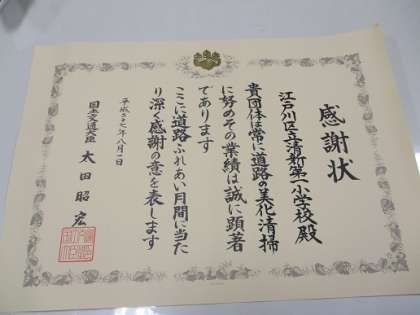 感謝状
江戸川区立清新第一小学校殿
貴団体は常に道路の美化清掃
に努めその業績は誠に顕著
であります
ここに道路ふれあい月間に当た
り深く感謝の意を表します
平成二十七年八月一日
国土交通大臣 太田昭宏